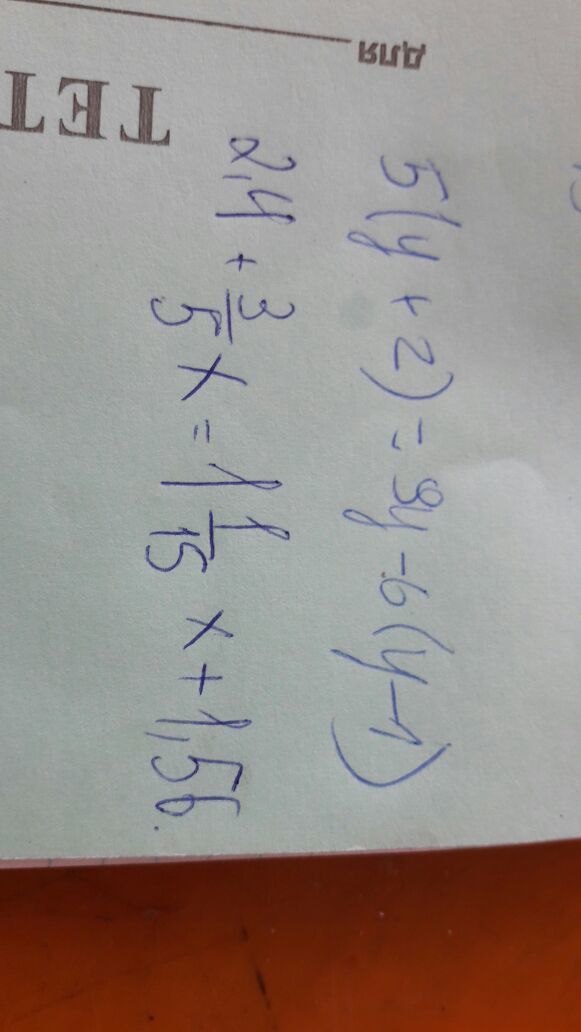 5(y + 2) = 9y - 6(y - 1)
2,4 + 3/5 x = 1 1/15 x + 1,56.
для
ТЕТ